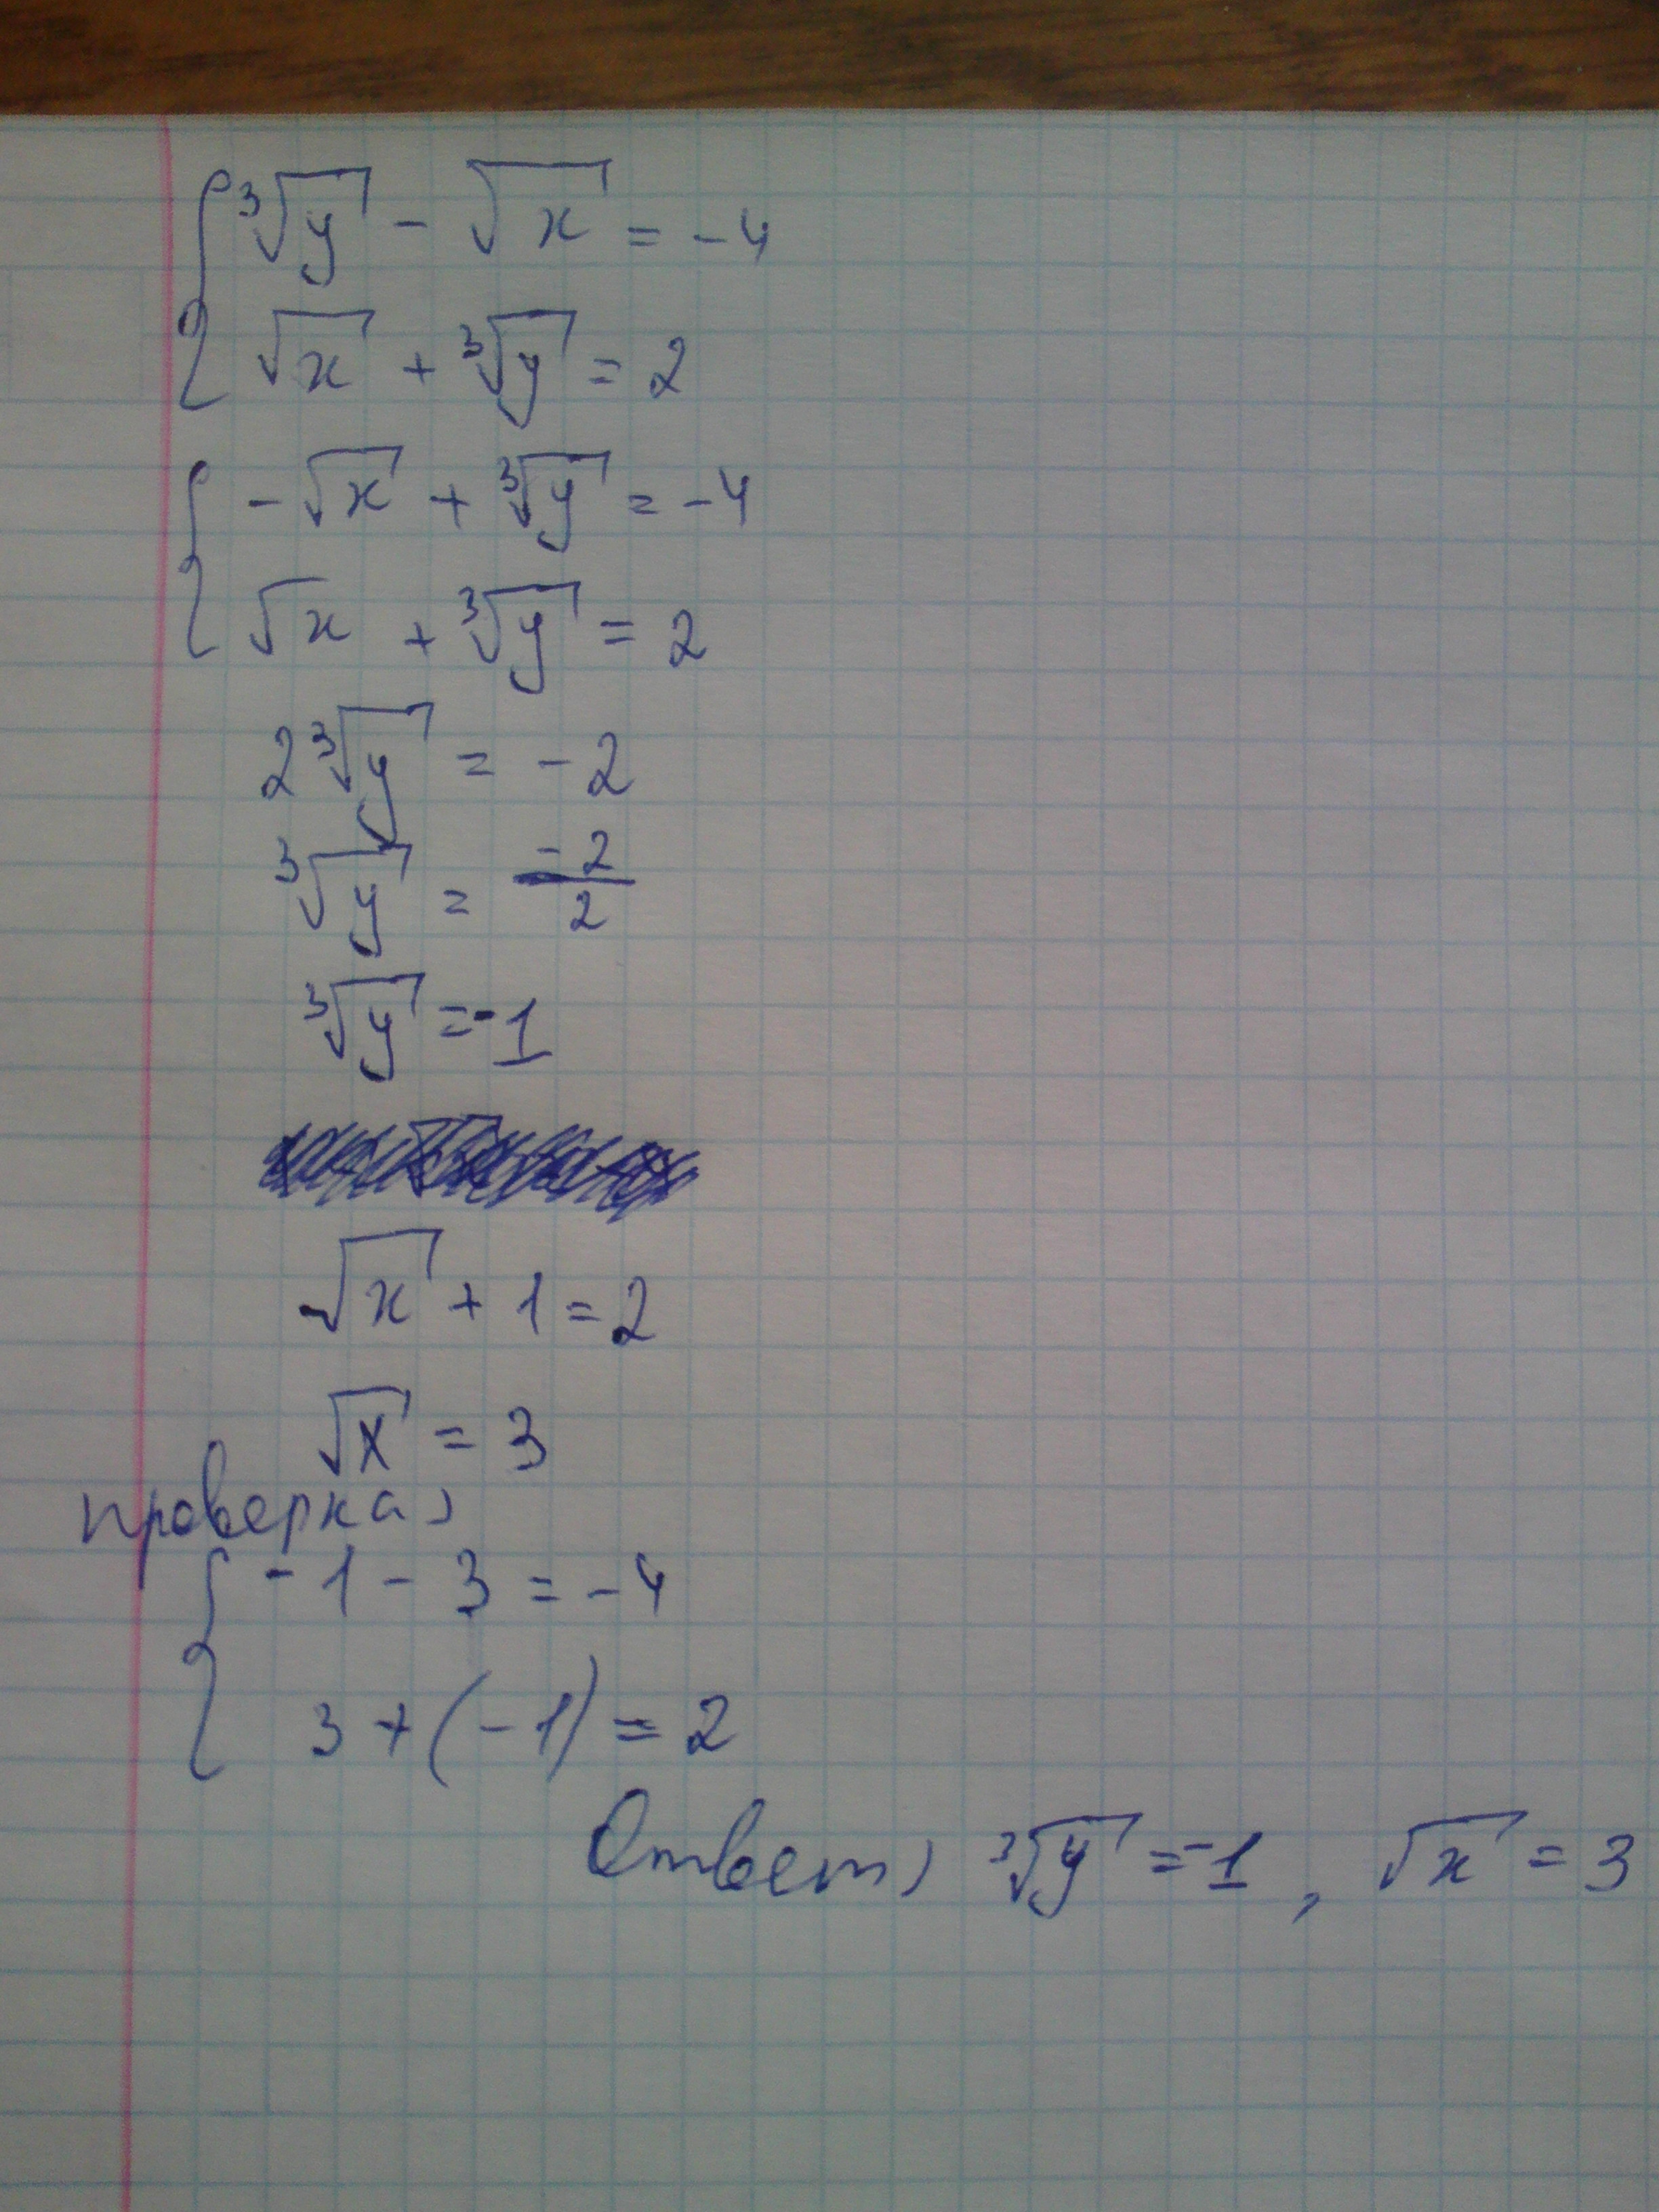 ∛y - √x = -4
√x + ∛y = 2
-√x + ∛y = -4
√x + ∛y = 2
2∛y = -2
∛y = -2/2
∛y = -1
√x + 1 = 2
√x = 3
проверка:
-1 - 3 = -4
3 + (-1) = 2
Ответ: ∛y = -1, √x = 3